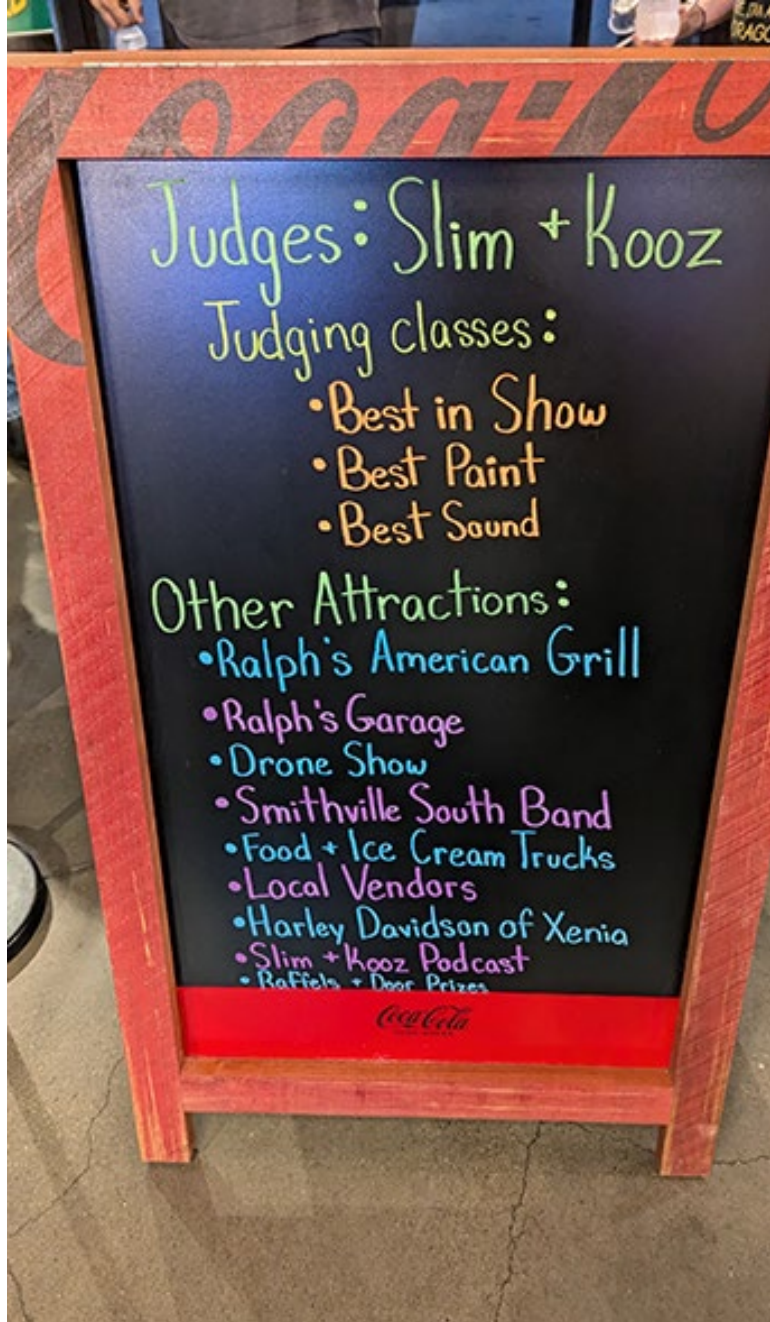 Coca-Co
DRAGO
Judges: Slim + Kooz
Judging classes:
• Best in Show
• Best Paint
• Best Sound
Other Attractions:
• Ralph's American Grill
• Ralph's Garage
• Drone Show
• Smithville South Band
• Food + Ice Cream Trucks
• Local Vendors
• Harley Davidson of Xenia
• Slim + Kooz Podcast
• Raffels + Door Prizes
Coca-Cola